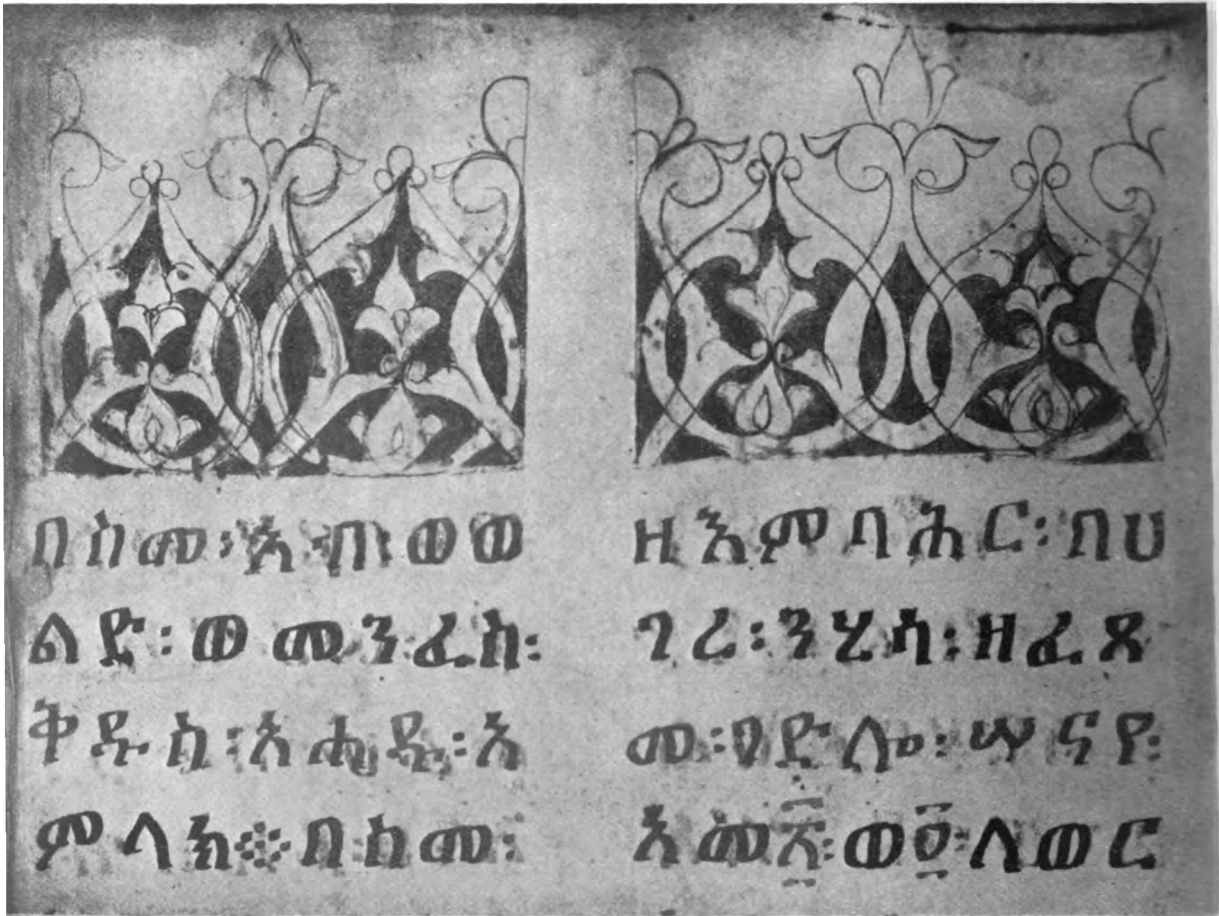 በስመ፡አብ፡ወወ
ልድ፡ወመንፈስ፡
ቅዱስ፡አሐዱ፡አ
ምላክ፨በከመ፡
ዘእምባሕር፡በሀ
ገረ፡ንሂሳ፡ዘፈጸ
መ፡ገድሎ፡ሠናየ፡
አመ፳፡ወ፬፡ለወር